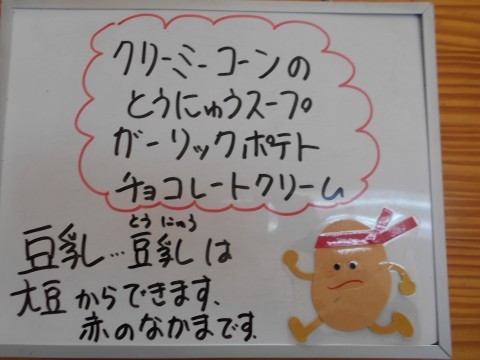 クリーミーコーンの
とうにゅうスープ
ガーリックポテト
チョコレートクリーム
とうにゅう
豆乳…豆乳は
大豆からできます、
赤のなかまです.